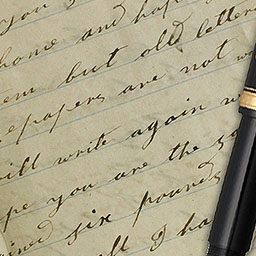 you
home and hope
em but old letter
epapers are not w
will write again w
pe you are the sa
ned six pounds
ft I ha